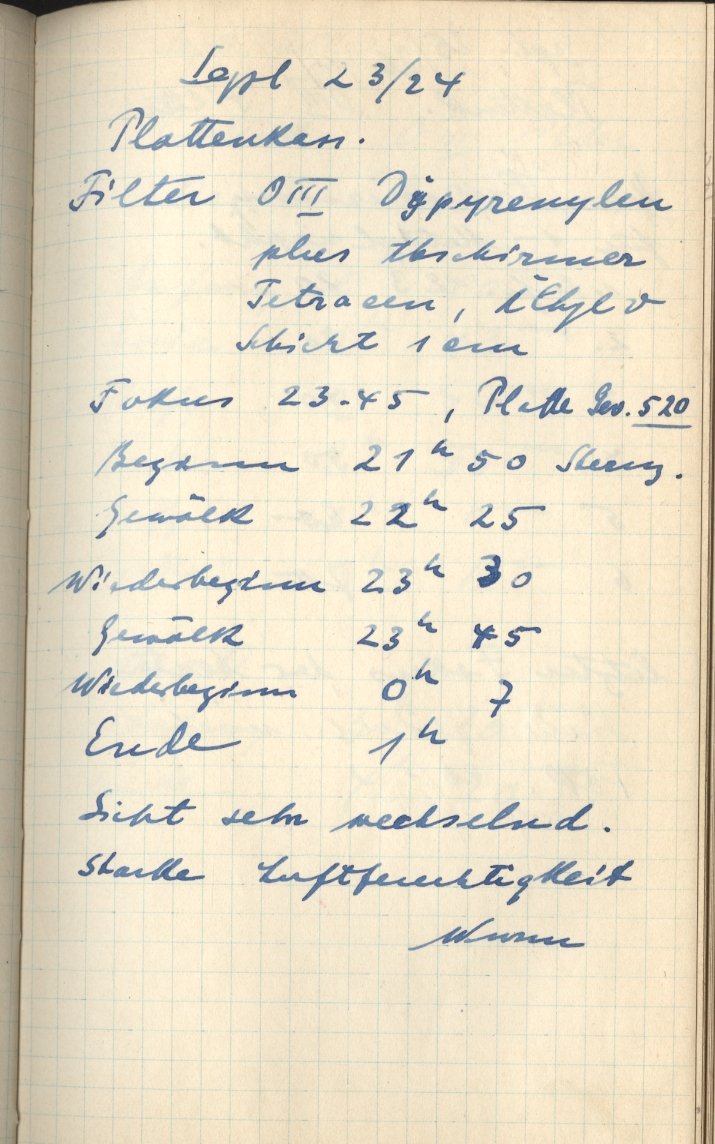 Sept 23/24
Plattenkass.
Filter O III Dipyrenylen
plus Abschirmer
Tetracen, Äthylo
Schicht 1 cm
Fokus 23.45, Platte Gev. 520
Beginn 21h 50 Sternz.
Gewölk 22h 25
Wiederbeginn 23h 30
Gewölk 23h 45
Wiederbeginn 0h 7
Ende 1h
Sicht sehr wechselnd.
Starke Luftfeuchtigkeit
Wurm